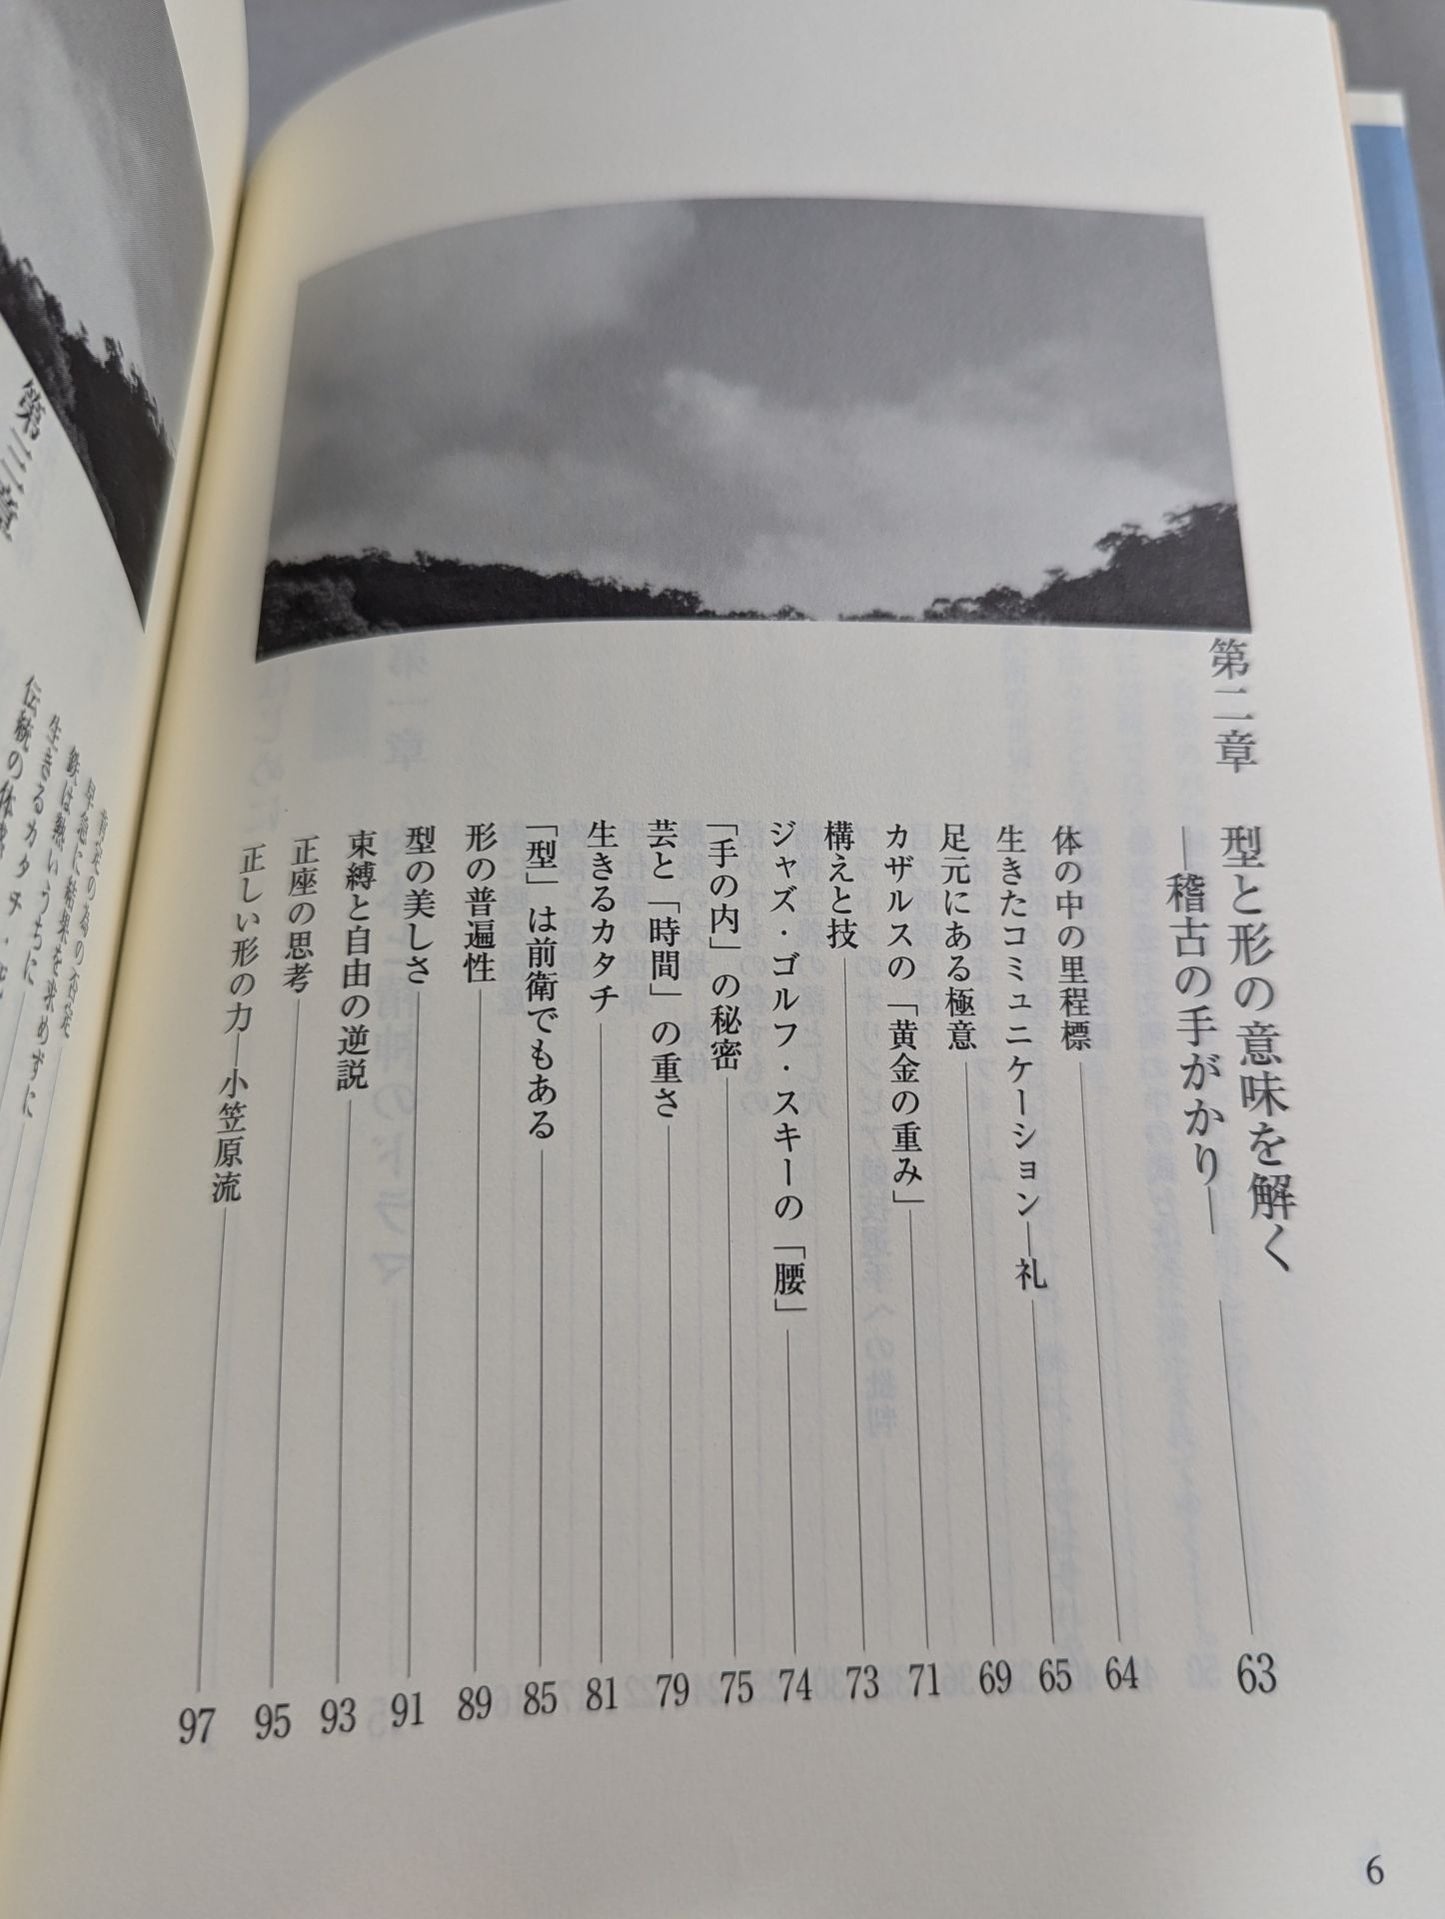 第二章
型と形の意味を解く 63
―稽古の手がかり―
体の中の里程標 64
生きたコミュニケーション―礼 65
足元にある極意 69
カザルスの「黄金の重み」 71
構えと技 73
ジャズ・ゴルフ・スキーの「腰」 74
「手の内」の秘密 75
芸と「時間」の重さ 79
生きるカタチ 81
「型」は前衛でもある 85
形の普遍性 89
型の美しさ 91
束縛と自由の逆説 93
正座の思考 95
正しい形の力―小笠原流 97
6
第三章
早急に結果を求めずに
鉄は熱いうちに
生きるカタチ